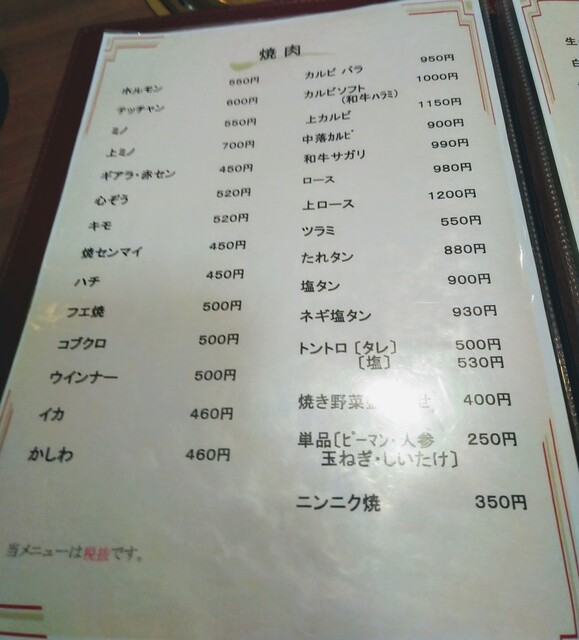 焼肉
ホルモン 550円
テッチャン 600円
ミノ 550円
上ミノ 700円
ギアラ・赤セン 450円
心ぞう 520円
キモ 520円
焼センマイ 450円
ハチ 450円
フエ焼 500円
コブクロ 500円
ウインナー 500円
イカ 460円
かしわ 460円
当メニューは税抜です。
カルビ バラ 950円
カルビソフト 1000円
(和牛ハラミ)
上カルビ 1150円
中落ｶﾙﾋﾞ 900円
和牛サガリ 990円
ロース 980円
上ロース 1200円
ツラミ 550円
たれタン 880円
塩タン 900円
ネギ塩タン 930円
トントロ〔タレ〕 500円
〔塩〕 530円
焼き野菜 せ 400円
単品〔ﾋﾟｰﾏﾝ・人参 250円
玉ねぎ・しいたけ〕
ニンニク焼 350円
生